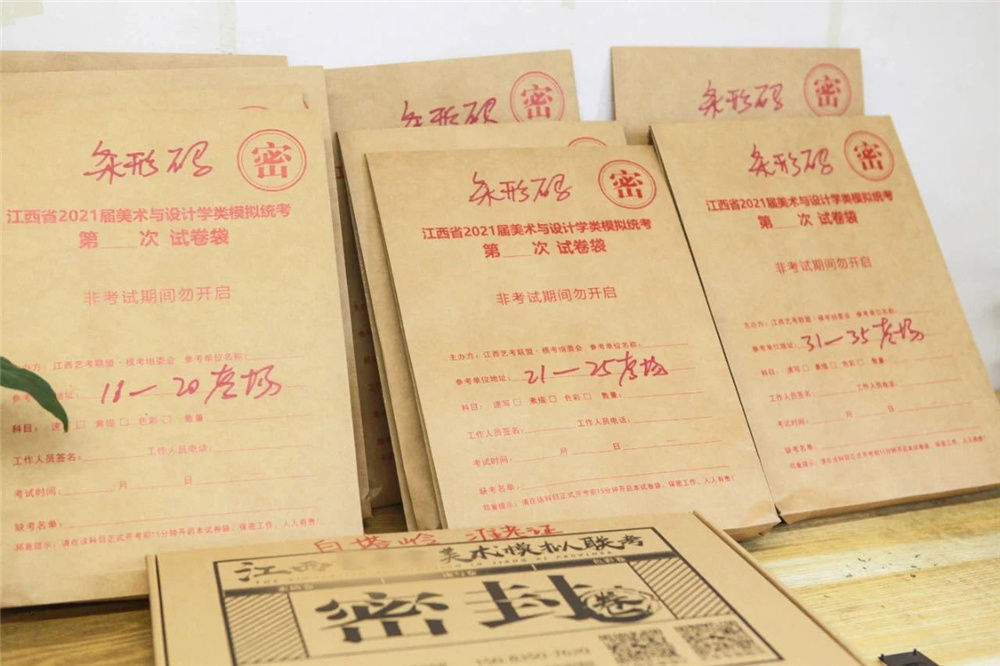 条形码
密
江西省2021届美术与设计学类模拟统考
第 次 试卷袋
非考试期间勿开启
主办方：江西艺考联盟·模考组委会 参考单位名称：
参考单位地址： 18—20考场
科目： 速写□ 素描□ 色彩□ 数量
工作人员签名： 工作人员电话：
考试时间： 月 日
缺考名单：
郑重提示：请在该科目正式开考前15分钟开启本试卷袋，保密工作，人人有责！
条形码
密
条形码
密
江西省2021届美术与设计学类模拟统考
第 次 试卷袋
非考试期间勿开启
主办方：江西艺考联盟·模考组委会 参考单位名称：
参考单位地址： 21—25考场
科目： 速写□ 素描□ 色彩□ 数量：
工作人员签名： 工作人员电话：
考试时间： 月 日
缺考名单：
郑重提示：请在该科目正式开考前15分钟开启本试卷袋，保密工作，人人有责！
条形码
密
条形码
密
江西省2021届美术与设计学类模拟统考
第 次 试卷袋
非考试期间勿开启
主办方：江西艺考联盟·模考组委会 参考单位名称：
参考单位地址： 31—35考场
科目： 速写□ 素描□ 色彩□ 数量
工作人员签名： 工作人员电话：
考试时间： 月 日
缺考名单：
郑重提示：请在该科目正式开考前15分钟开启本试卷袋，保密工作，人人有责！
白塔岭 准考证
江西 美术模拟联考
密封卷